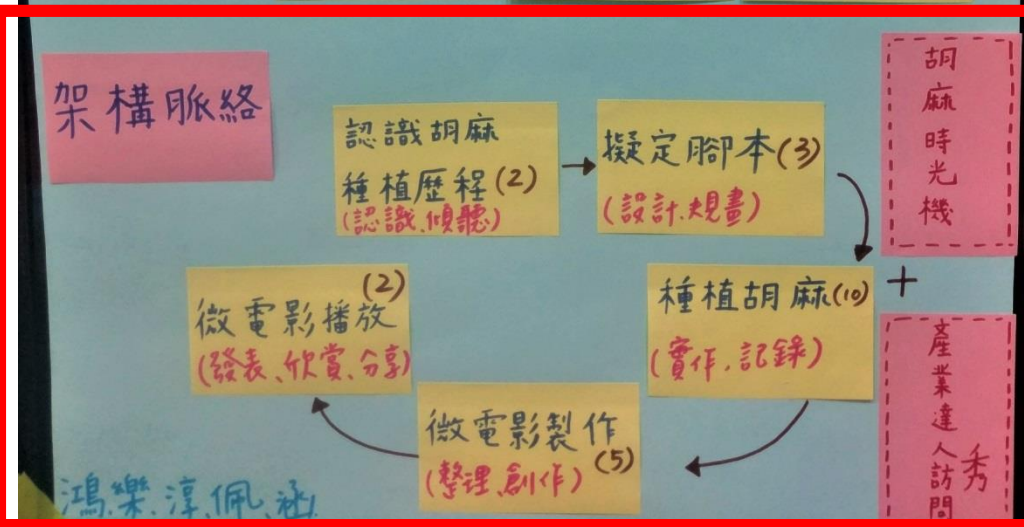 架構脈絡
認識胡麻
種植歷程(2)
(認識、傾聽)
擬定腳本(3)
(設計、規畫)
種植胡麻(10)
(實作、記錄)
微電影製作
(5)
(整理、創作)
(2)
微電影播放
(發表、欣賞、分享)
胡麻時光機
+
產業達人訪問
秀
鴻、樂、淳、佩、涵